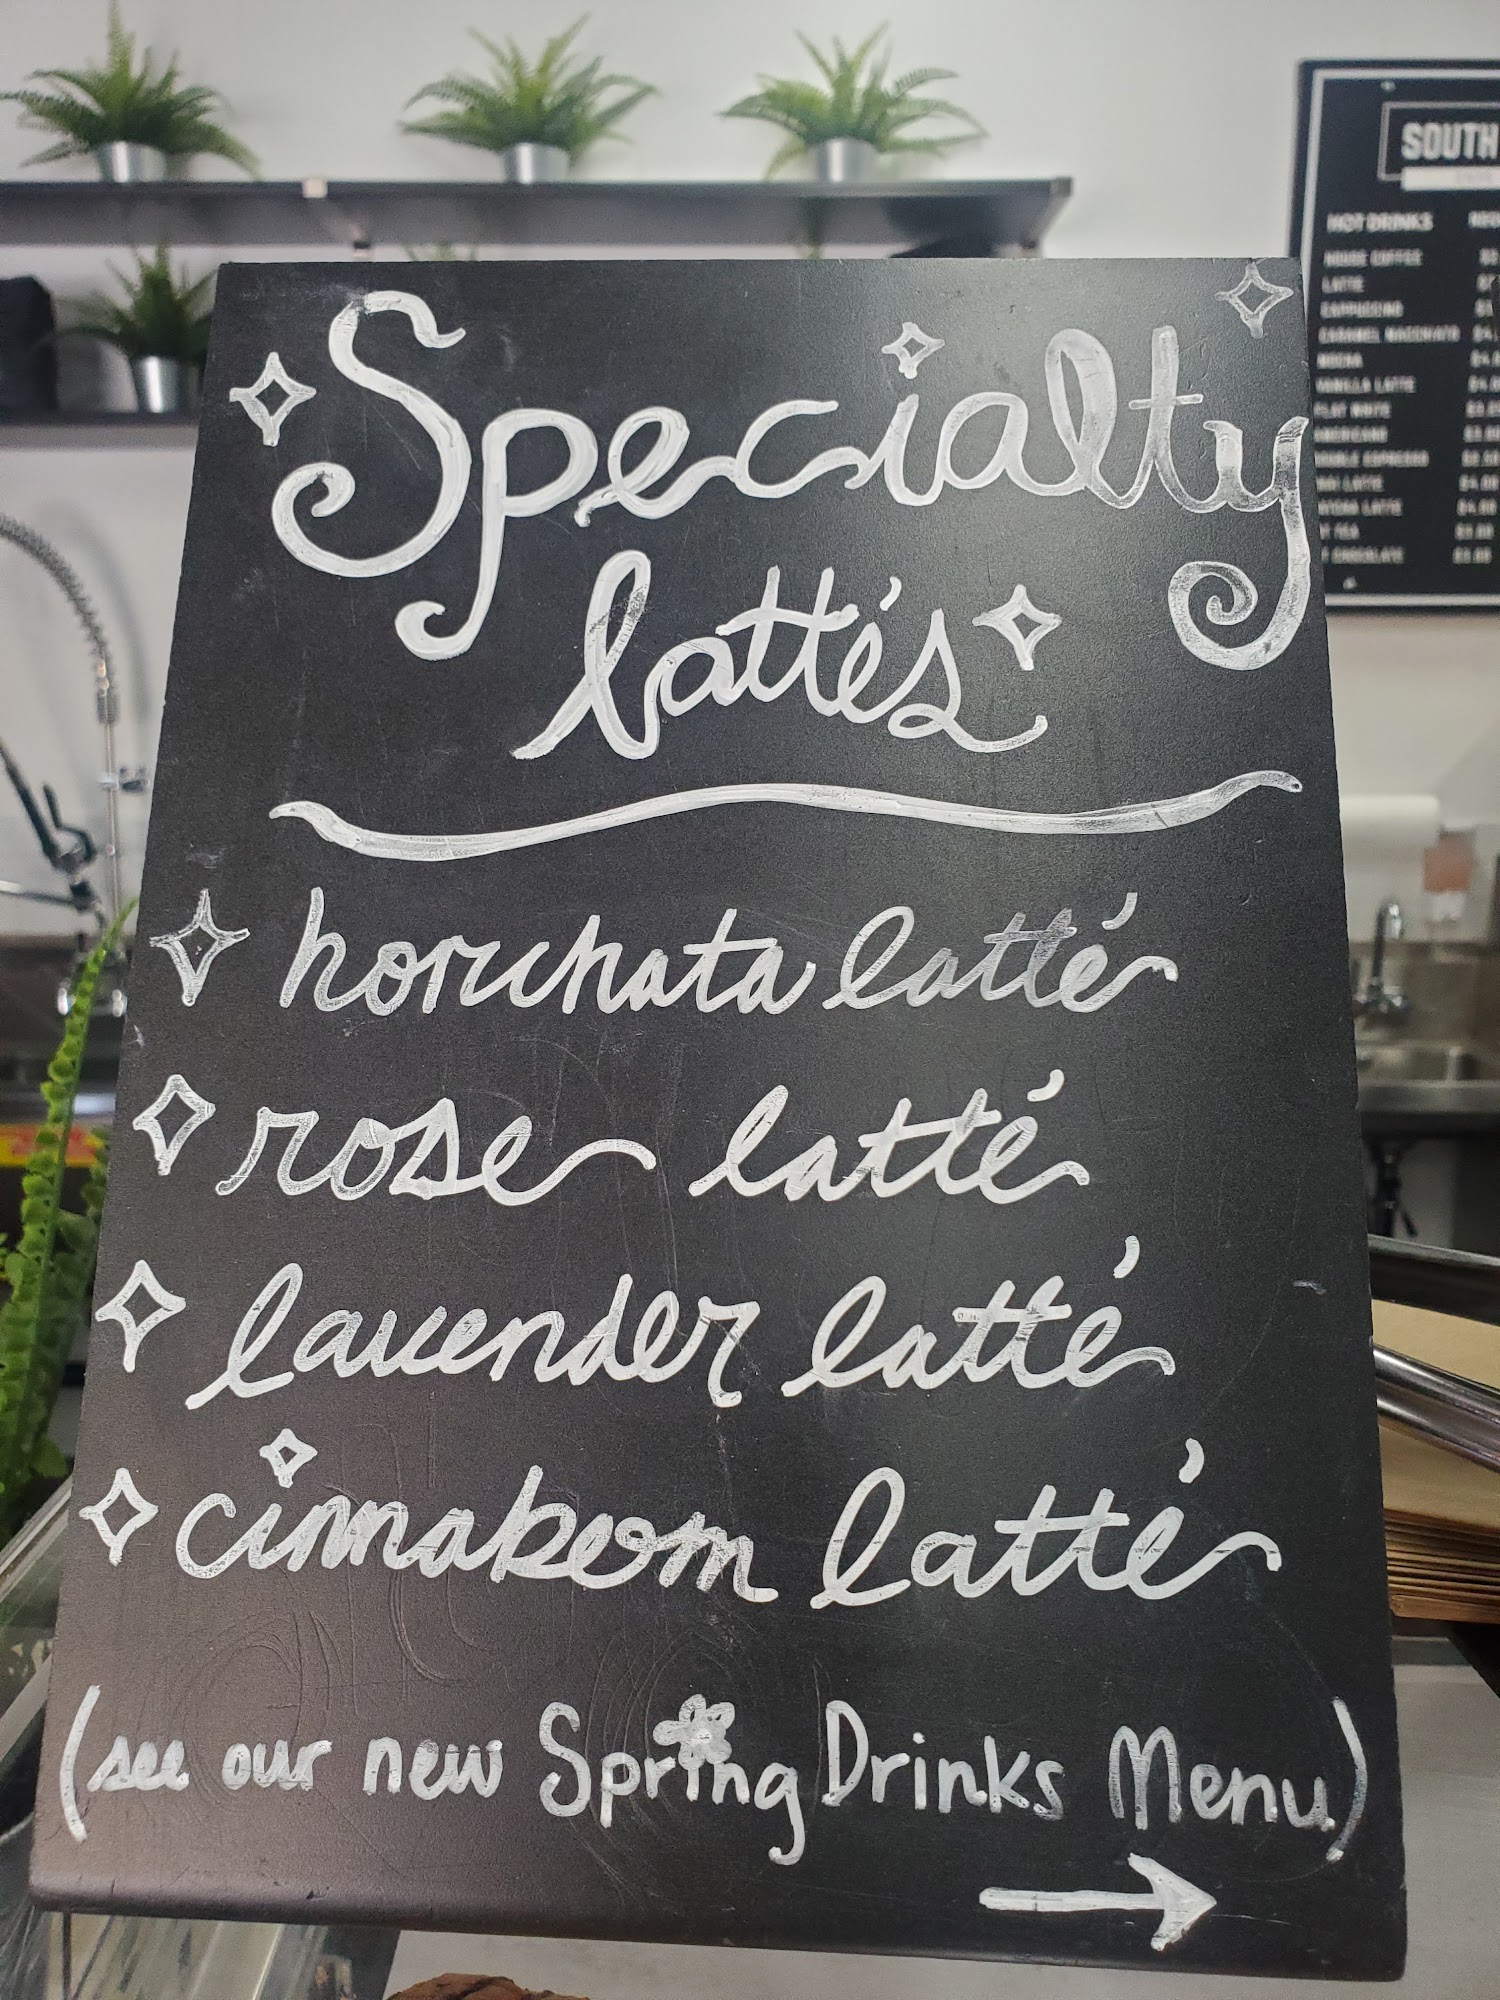 Specialty
lattés
horchata latté
rose latté
lavender latté
cinnabom latté
(see our new Spring Drinks Menu)
SOUTH
HOT DRINKS
HOUSE COFFEE
LATTE
CAPPUCCINO
CARAMEL MACCHIATO
MOCHA
VANILLA LATTE
FLAT WHITE
AMERICANO
LATTE
LATTE
TEA
CHOCOLATE